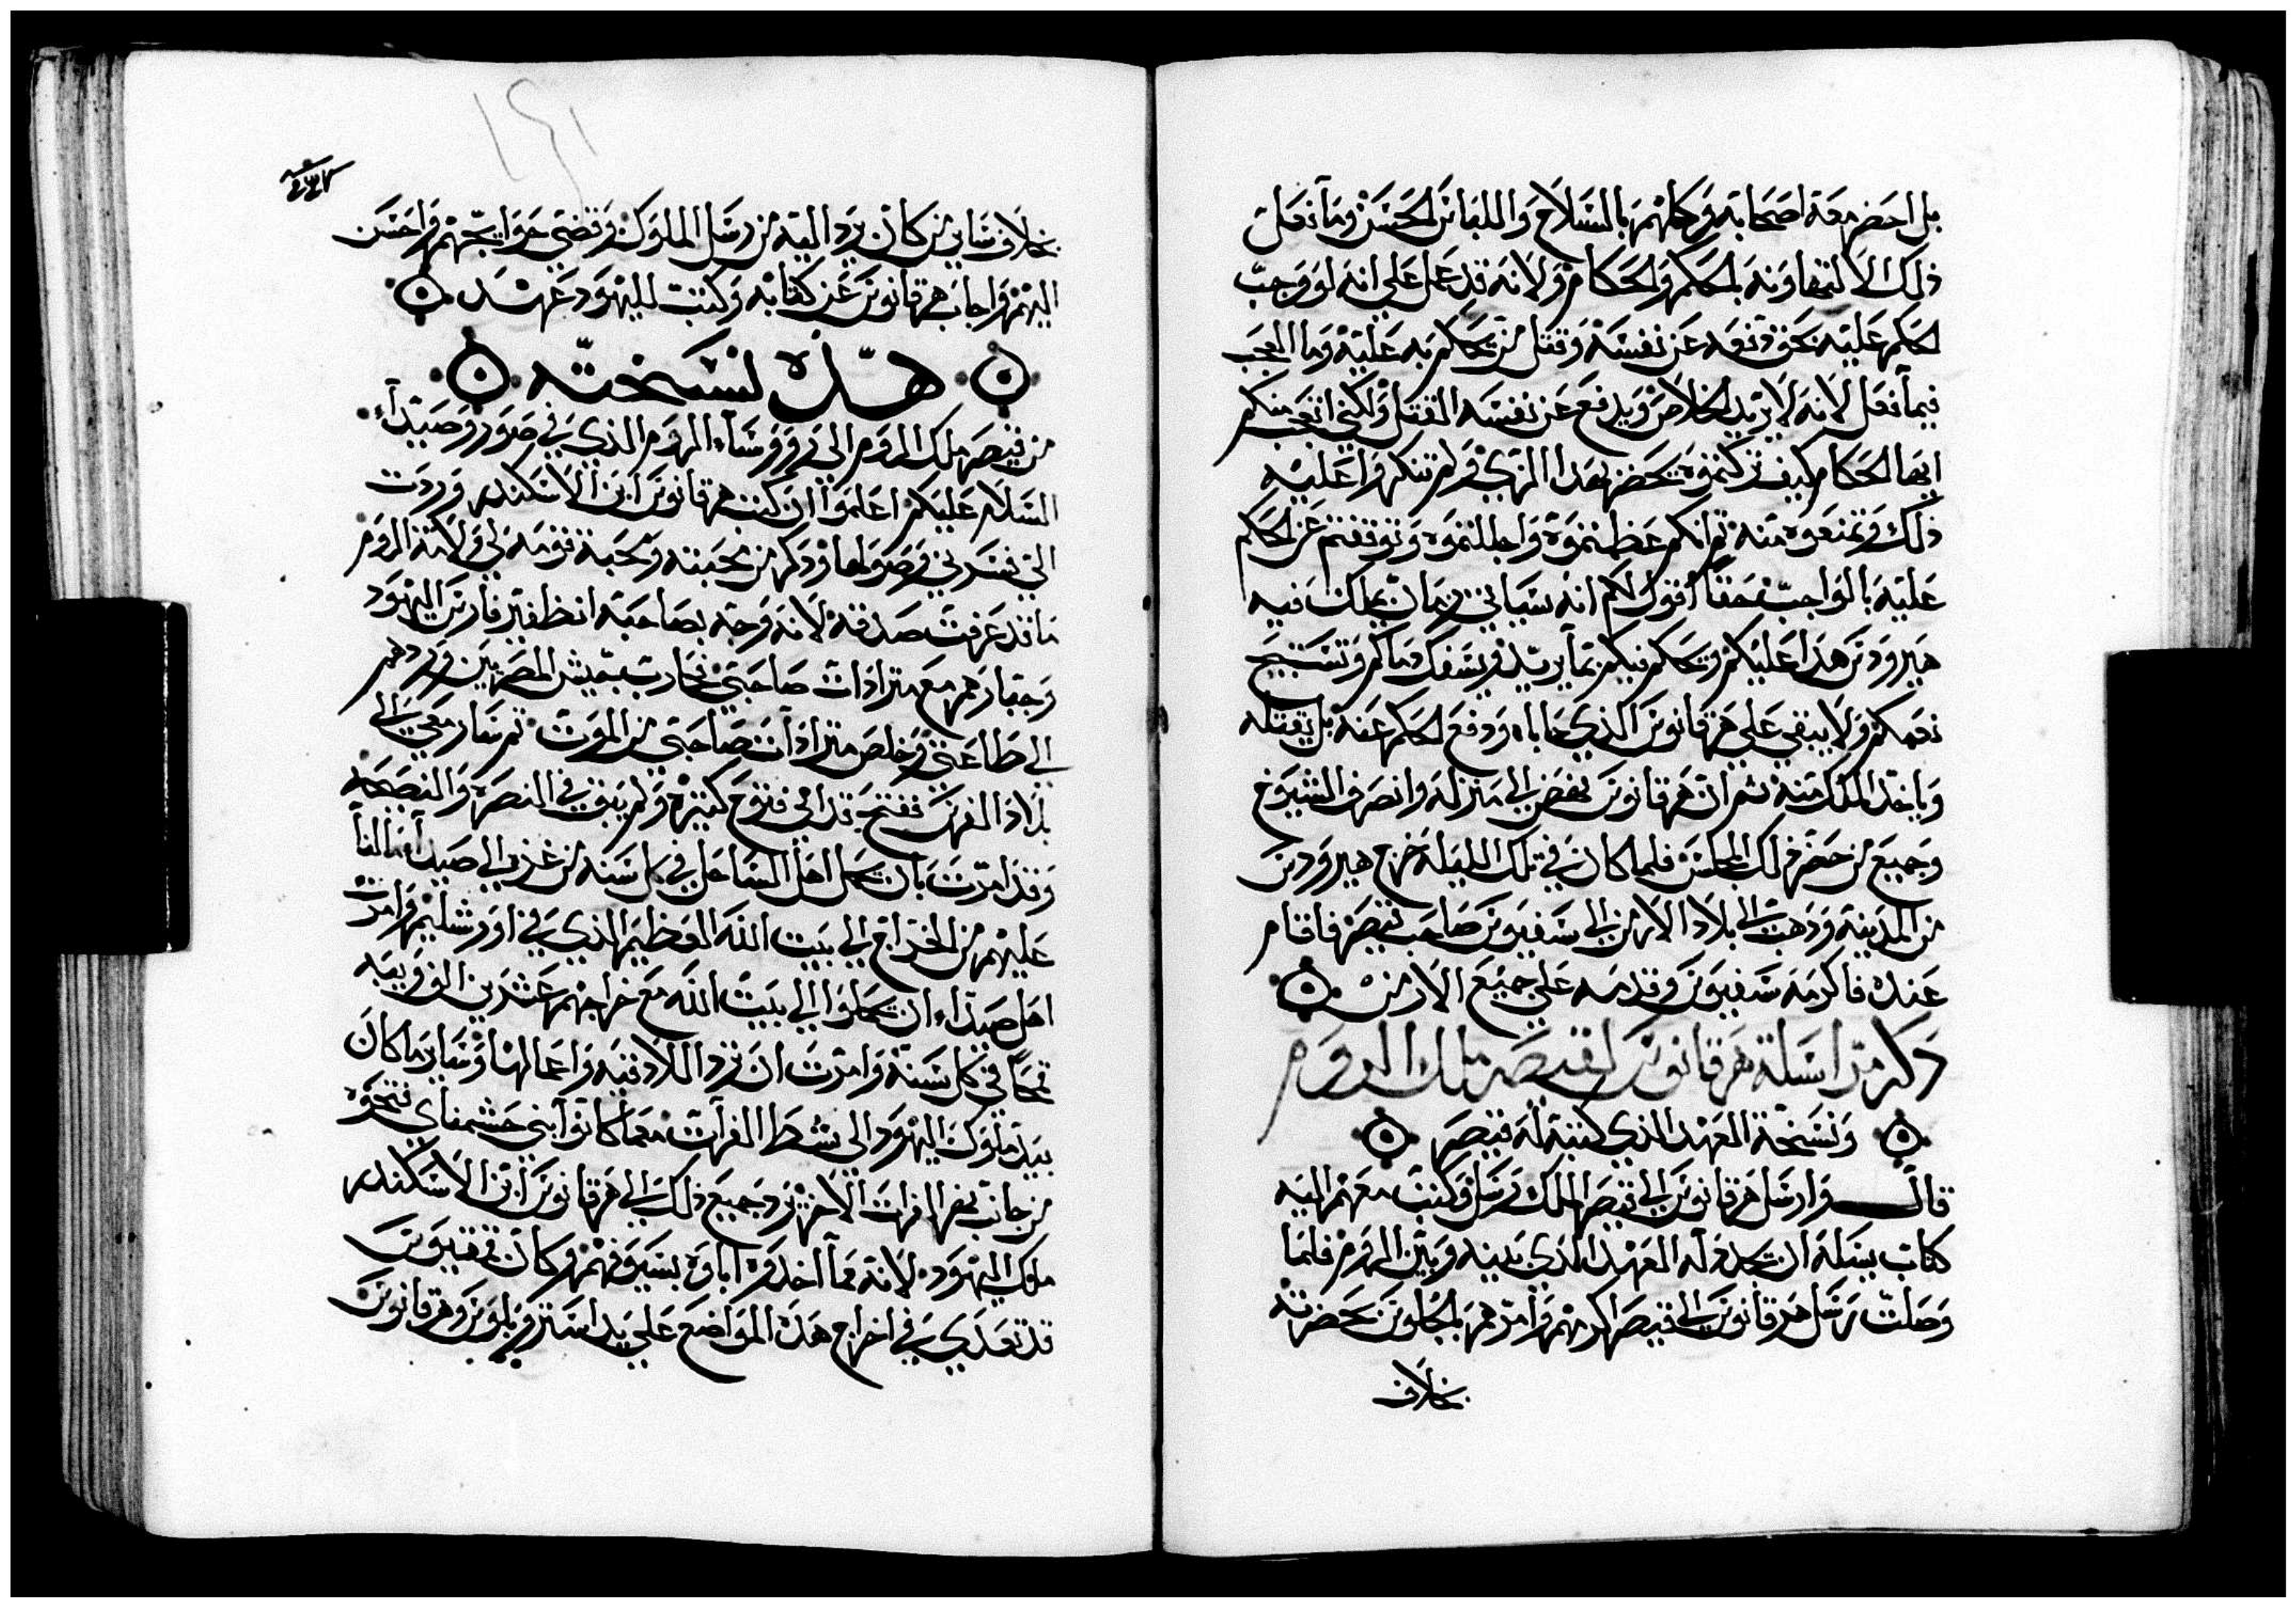 بل احضر معه اصحابه وكلهم بالسلاح واللباس الحسن وما فعل
ذلك الا لتهاونه بالحكم والحكام ولانه قد عمل علي انه لو وجب
الحكم عليه بحق دفعه عن نفسه وقتل من يحكم به عليه وما العجب
فيما فعل لانه لا يريد الخلاص ويدفع عن نفسه القتل ولكني اتعجب منكم
ايها الحكام كيف تركتموه يحضر بهذا الزي ولم تنكروا عليه
ذلك وتمنعوه منه ثم انكم عظمتموه واجللتموه وتوقفتم عن الحكم
عليه بالواجب حقا اقول لكم انه سياتي زمان يملك فيه
هيرودس هذا عليكم ويحكم فيكم بما يريد ويسفك دماكم وتستبيح
نعمكم ولا يبقي علي هرقانوس الذي حاباه ودفع الحكم عنه بل يقتله
وياخذ الملك منه ثم ان هرقانوس نهض الي منزله وانصرف الشيوخ
وجميع من حضر ذلك المجلس فلما كان في تلك الليله خرج هيرودس
من المدينة وذهب الي بلاد الارمن الي سفيوس صاحب قيصر فاقام
عنده فاكرمه سفيوس وقدمه علي جميع الارمن
ذكر مراسلة هرقانوس لقيصر ملك الروم
ونسخة العهد الذي كتبه له قيصر
قال وارسل هرقانوس الي قيصر الملك رسل وكتب معهم اليه
كتاب يسله ان يجدد له العهد الذي بينه وبين الروم فلما
وصلت رسل هرقانوس الي قيصر اكرمهم وامرهم بالجلوس بحضرته
بخلاف
١٤١
بخلاف ساير من كان يرد اليه من رسل الملوك وقضي حوايجهم واحسن
اليهم واجاب هرقانوس عن كتابه وكتب لليهود عهد
هذه نسخته
من قيصر ملك الروم الي روسآء الروم الذي في صور وصيدآء
السلام عليكم اعلموا ان كتب هرقانوس ابن الاسكندر وردت
الي فسرني وصولها وذكر من محبته ومحبة قومه لي ولامة الروم
ما قد عرفت صدقه لانه وجه بصاحبه انظفيتر فارس اليهود
وجبارهم مع متراداث صاحبي فحارب بجيش المصريين وردهم
الي طاعتي وخلص متراداث صاحبي من الموت ثم سار معي الي
بلاد الفرس ففتح قدامي فتوح كثيره ولم يبق في النصرة والنصيحه
وقد امرت بان يحمل اهل الساحل في كل سنه من غزه الي صيدآ ما لنا
عليهم من الخراج الي بيت الله العظيم الذي في اورشليم وامرت
اهل صيدآء ان يحملوا الي بيت الله مع خراجهم عشرين الف ويبه
قمحا في كل سنة وامرت ان ترد اللادقيه واعمالها وساير ما كان
بيد ملوك اليهود الي شط الفرات مما كانوا بني حشمناي فتحوه
من جانب نهر الفرات الاخر يرد جميع ذلك الي هرقانوس ابن الاسكندر
ملك اليهود لانه مما اخذوه اباوه بسيوفهم وكان فمفيوس
قد تعدي في اخراج هذه المواضع علي يد ارستوبلوس وهرقانوس